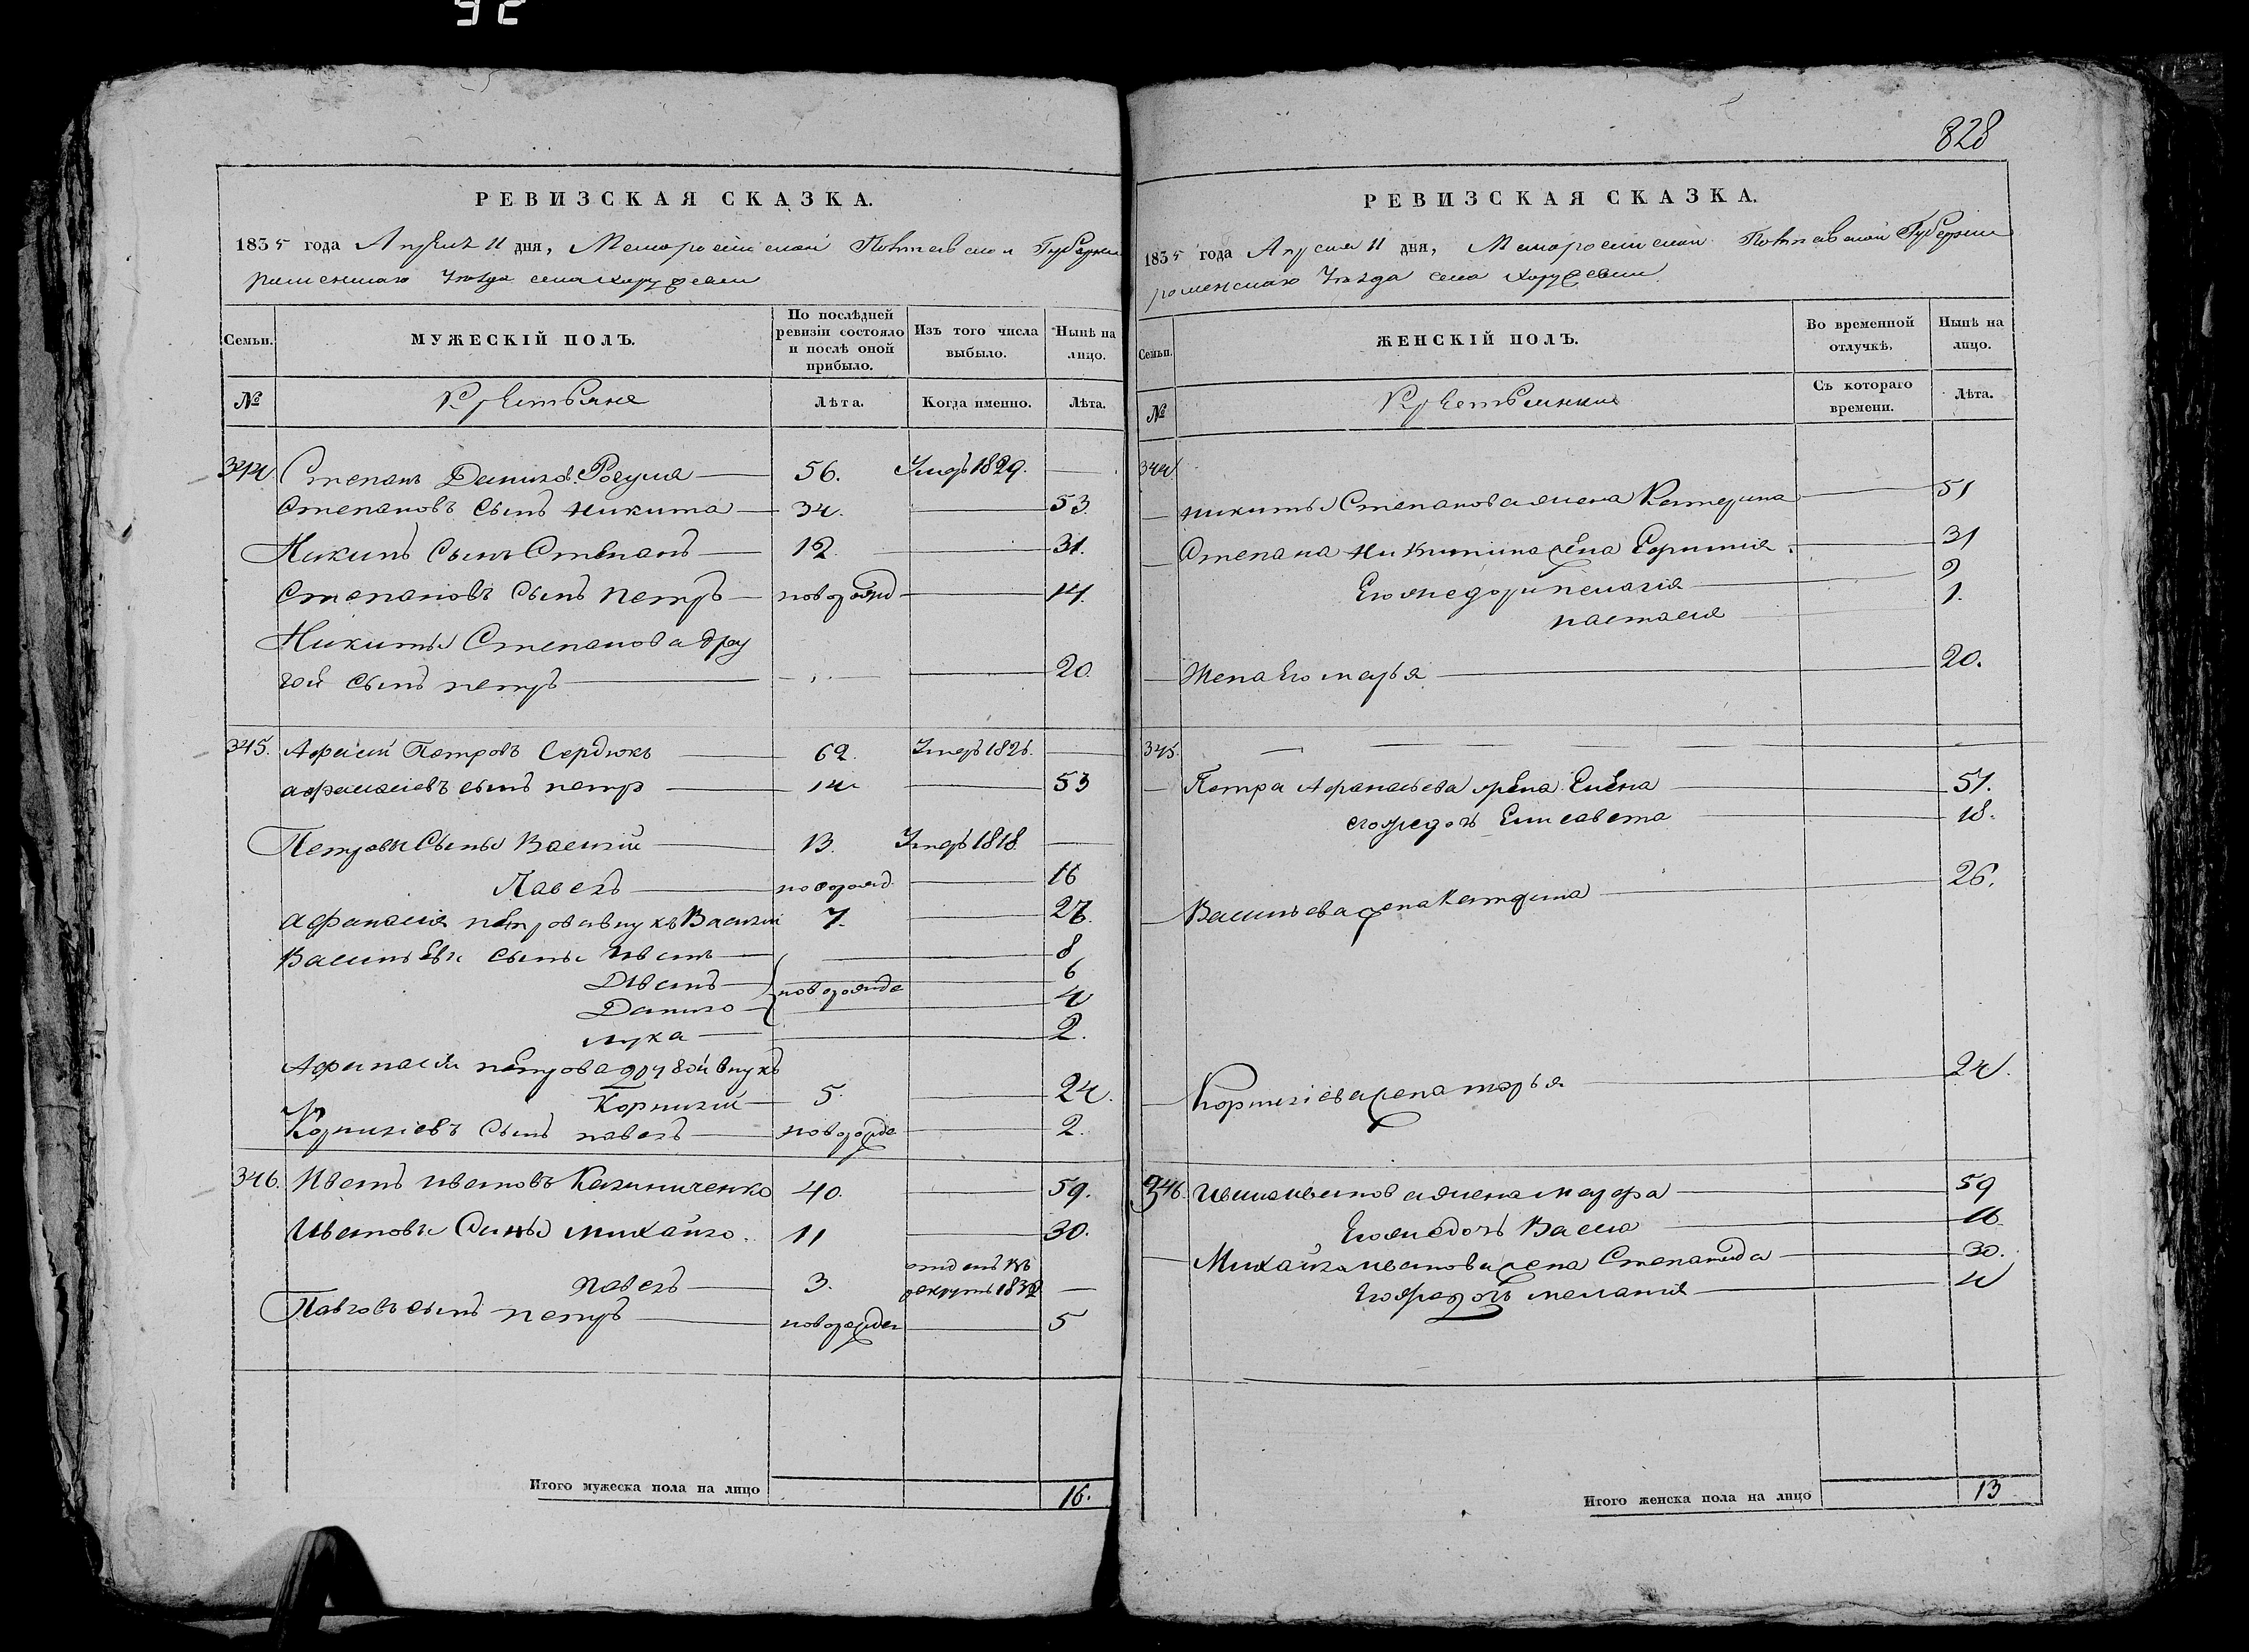 92
828
РЕВИЗСКАЯ СКАЗКА.
1835 года Апреля 11 дня, Малороссийской Полтавской Губернии
роменскаго уѣзда села Хоружевки
Семьи.
МУЖЕСКІЙ ПОЛЪ.
По послѣдней ревизіи состояло и послѣ оной прибыло.
Изъ того числа выбыло.
Нынѣ на лицо.
№
Крестьяне
Лѣта.
Когда именно.
Лѣта.
344 Степанъ Данилов 56. Умръ 1829.
Степановъ сынъ Никита 34. 53.
Никитъ сынъ Степанъ 12. 31.
Степановъ сынъ петръ новорожд 14.
Никиты Степанова дру
гой сынъ петръ 20.
345. Афанасій Петровъ Сердюкъ 62. Умеръ 1826.
афанасіевъ сынъ петръ 14 53
Петровы Сыны Василій 13. Умеръ 1818.
Павелъ новорожд 16
афанасія петрова внукъ Василій 7. 26.
Васильевы сыны Иванъ 8
Иванъ 6
Данило новорожде 4
лука 2.
Афанасія петрова другой внукъ
Корнилій 5. 24.
Корниліевъ сынъ павелъ новорожде 2.
346. Иванъ ивановъ Калиниченко 40. 59.
Ивановы Сины михайло. 11 30.
павелъ 3. отданъ въ рекруты 1832
Павловъ сынъ петръ новорожден 5
Итого мужеска пола на лицо 16.
РЕВИЗСКАЯ СКАЗКА.
1835 года Апреля 11 дня, Малороссийской Полтавской Губернии
роменскаго уѣзда села Хоружевки
Семьи.
ЖЕНСКІЙ ПОЛЪ.
Во временной отлучкѣ.
Нынѣ на лицо.
№
Крестьянки
Съ котораго времени.
Лѣта.
344
никиты Степанова жена Катерина 51
Степана Никитина жена 31
Его жедочери пелагія 9
настасія 1.
Жена Его марья 20.
345.
Петра Афанасьева жена Елена 51.
егожедочь Елисавета 18.
Васильева жена Катерина 26.
Корниліева жена марья 24.
346. Ивана иванова жена марфа 59
Егожедочь Васса 16
Михайла иванова жена Степанида 30.
Егожедочь меланія 4
Итого женска пола на лицо 13